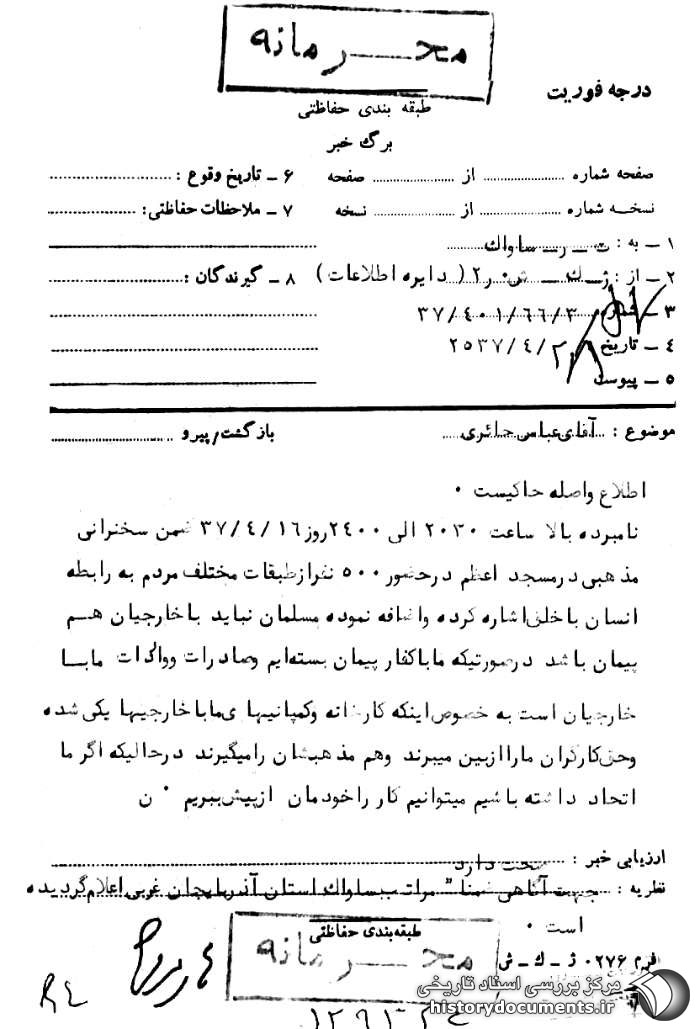 محرمانه
درجه فوریت
طبقه بندی حفاظتی
برگ خبر
صفحه شماره ........ از ........ صفحه
۶ ـ تاریخ وقوع : ........
نسخه شماره ........ از ........ نسخه
۷ ـ ملاحظات حفاظتی: ........
۱ ـ به : ت ـ ر ـ ساواك
۲ ـ از : ژ ـ ك ـ ش۰ر۲ ( دایره اطلاعات )
۸ ـ گیرندگان :
۳ ـ شماره ۳۷/٤۰۱/٦٦/۳
٤ ـ تاریخ ۲۵۳۷/٤/۲۸
۵ ـ پیوست
موضوع : آقای عباس حائری
بازگشت/پیرو
اطلاع واصله حاکیست ۰
نامبرده بالا ساعت ۲۰۳۰ الی ۲٤۰۰ روز ۳۷/٤/۱٦ ضمن سخنرانی
مذهبی در مسجد اعظم در حضور ۵۰۰ نفر از طبقات مختلف مردم به رابطه
انسان با خلق اشاره کرده و اضافه نموده مسلمان نباید با خارجیان هم
پیمان باشد در صورتیکه ما با کفار پیمان بسته‌ایم و صادرات و واردات ما با
خارجیان است به خصوص اینکه کارخانه و کمپانیهای ما با خارجیها یکی شده
وحق کارگران ما را از بین میبرند وهم مذهبشان را میگیرند در حالیکه اگر ما
اتحاد داشته باشیم میتوانیم کار را خودمان از پیش ببریم ۰ ن
ارزیابی خبر : صحت دارد
نظریه : جهت آگاهی ضمنا" مراتب بساواك استان آذربایجان غربی اعلام گردیده
است ۰
طبقه بندی حفاظتی
محرمانه
فرم ۰۲۷۶ ژ ـ ك ـ ش
مرکز بررسی اسناد تاریخی
historydocuments.ir